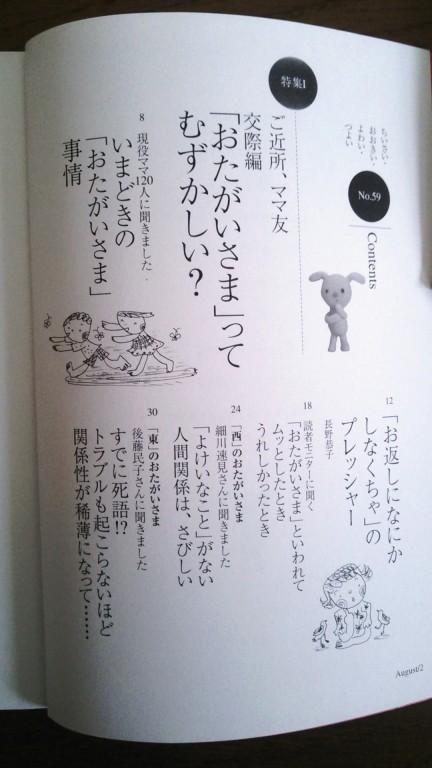 ちいさい・
おおきい・
よわい・
つよい
No.59
Contents
特集1
ご近所、ママ友
交際編
「おたがいさま」って
むずかしい？
8 現役ママ120人に聞きました
いまどきの
「おたがいさま」
事情
12 「お返しになにか
しなくちゃ」の
プレッシャー
長野恭子
18 読者モニターに聞く
「おたがいさま」といわれて
ムッとしたとき
うれしかったとき
24 「西」のおたがいさま
細川速見さんに聞きました
「よけいなこと」がない
人間関係は、さびしい
30 「東」のおたがいさま
後藤民子さんに聞きました
すでに死語!?
トラブルも起こらないほど
関係性が稀薄になって……
August/2